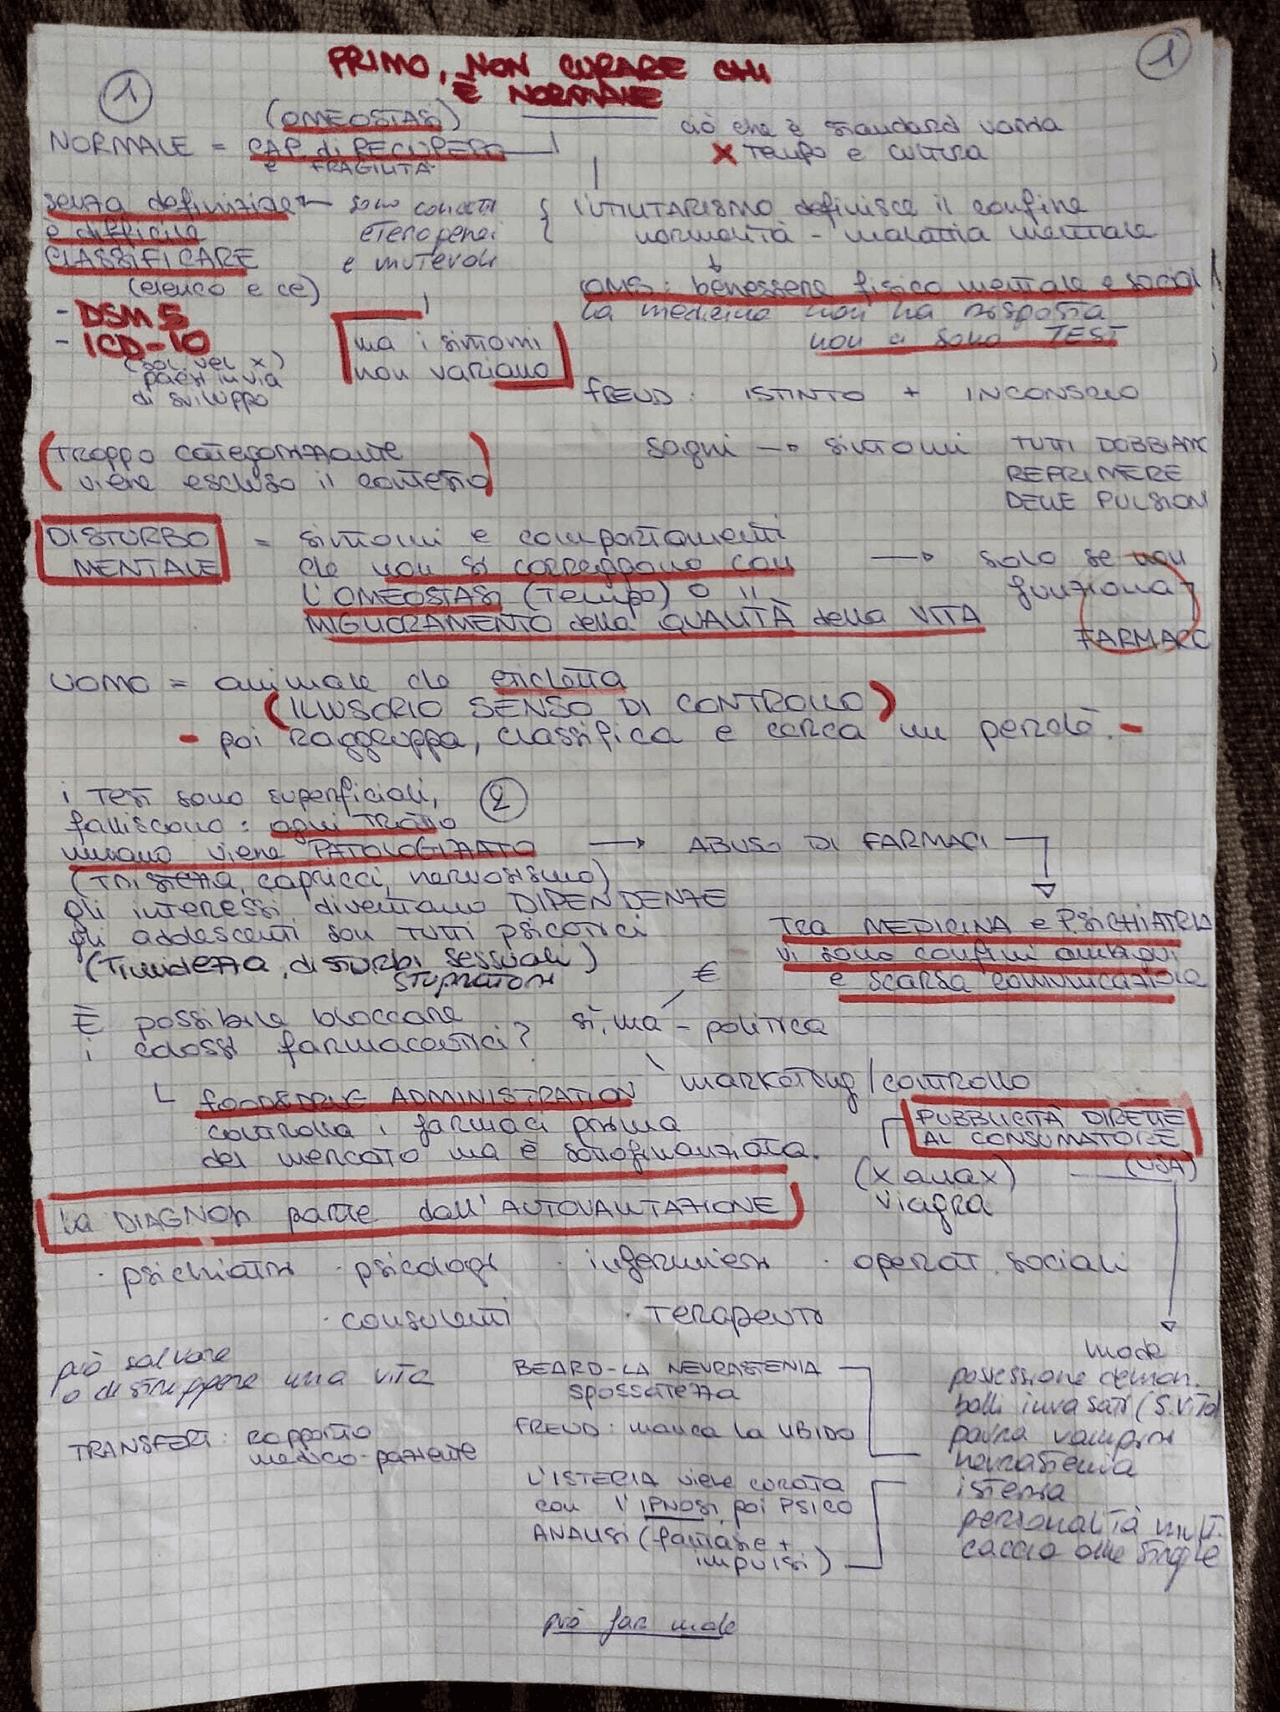 PRIMO, NON CURARE CHI
È NORMALE
1
1
(OMEOSTASI)
NORMALE = CAP. di RECUPERO
e FRAGILITÀ
ciò che è standard varia
x tempo e cultura
senza definizione
è difficile
CLASSIFICARE
(elenco e ce)
- DSM 5
- ICD-10
(sol vel x)
paesi in via
di sviluppo
sono concetti
eterogenei
e mutevoli
ma i sintomi
non variano
L'UTILITARISMO definisce il confine
normalità - malattia mentale
OMS: benessere fisico mentale e social
la medicina non ha risposta
non ci sono TEST
FREUD: ISTINTO + INCONSCIO
sogni → sintomi
TUTTI DOBBIAMO
REPRIMERE
DELLE PULSIONI
(TROPPO categorizzante
viene escluso il contesto)
DISTURBO
MENTALE
= sintomi e comportamenti
che non si correggono con
L'OMEOSTASI (tempo) o il
MIGLIORAMENTO della QUALITÀ della VITA
→ solo se non
funziona
FARMACO
UOMO = animale che etichetta
(ILLUSORIO SENSO DI CONTROLLO)
- poi raggruppa, classifica e cerca un perché. -
2
i test sono superficiali,
falliscono: ogni tratto
umano viene PATOLOGIZZATO → ABUSO DI FARMACI
(tristezza, capricci, nervosismo)
gli interessi diventano DIPENDENZE
gli adolescenti son TUTTI psicotici
(Timidezza, disturbi sessuali)
STUPRATORI
Tra MEDICINA e PSICHIATRIA
vi sono confini ambigui
e scarsa comunicazione
È possibile bloccare
i colossi farmaceutici?
sì, ma - politica
€
marketing/controllo
└ FOOD&DRUG ADMINISTRATION
controlla i farmaci prima
del mercato ma è sottofinanziata.
PUBBLICITÀ DIRETTE
AL CONSUMATORE
(USA)
(xanax)
viagra
la DIAGNOSI parte dall'AUTOVALUTAZIONE
· psichiatri · psicologi · infermieri · operat. sociali
· consulenti · terapeuti
può salvare
o distruggere una vita
TRANSFERT: rapporto
medico-paziente
BEARD - LA NEVRASTENIA
spossatezza
FREUD: manca la LIBIDO
L'ISTERIA viene curata
con l'IPNOSI, poi PSICO
ANALISI (fantasie +
impulsi)
mode
possessione demon.
balli invasati (S. Vito)
paura vampiri
nevrastenia
isteria
personalità mult.
caccia alle streghe
può far male